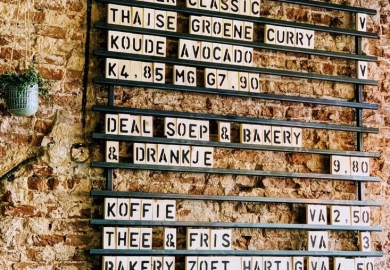 CLASSIC
THAISE GROENE CURRY V
KOUDE AVOCADO V
K4.85 M6 G7.90 V
DEAL SOEP & BAKERY
& DRANKJE 9.80
KOFFIE VA 2.50
THEE & FRIS VA 3
BAKERY ZOET HARTIG VA